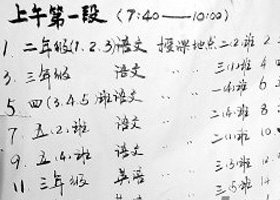 上午第一段 (7:40——10:00)
1. 二年级(1.2.3)语文 授课地点 二(2) 2
3. 三年级 语文 〃 〃 三(1) 4
5. 四(3.4.5)班语文 〃 〃 一(4) 6
7. 五(2)班 语文 〃 〃 二(4) 8
9. 五(4)班 语文 〃 〃 二(1) 10
11. 三年级 英语 〃 三(3)班 12
三(5)班 14